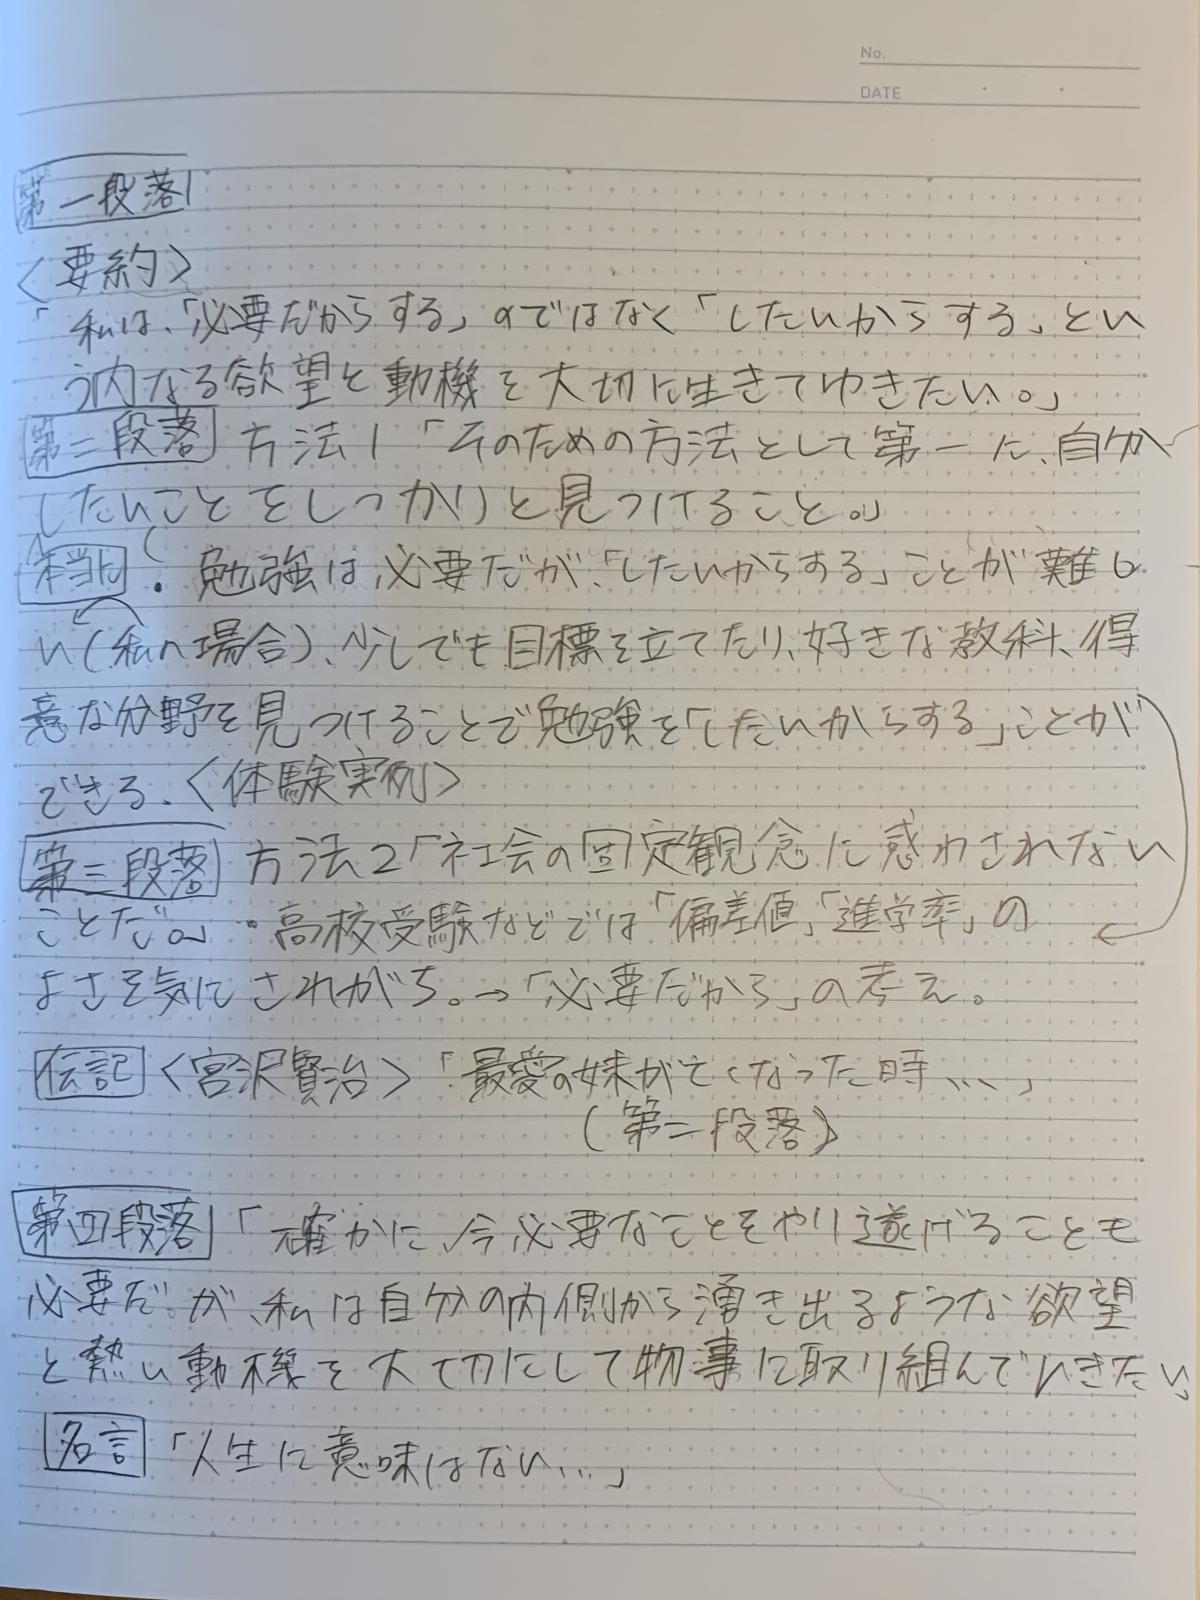 No.
DATE
第一段落
〈要約〉
「私は、「必要だからする」のではなく「したいからする」とい
う内なる欲望と動機を大切に生きてゆきたい。」
第二段落 方法1「そのための方法として第一に、自分
したいことをしっかりと見つけること。」
本当に・勉強は必要だが、「したいからする」ことが難し
い(私の場合)、少しでも目標を立てたり、好きな教科、得
意な分野を見つけることで勉強を「したいからする」ことが
できる、〈体験実例〉
第三段落 方法2「社会の固定観念に惑わされない
ことだ。」・高校受験などでは「偏差値」「進学率」の
よさを気にされがち。→「必要だから」の考え。
伝記〈宮沢賢治〉「最愛の妹が亡くなった時、、、」
(第二段落)
第四段落「確かに、今必要なことをやり遂げることも
必要だ。が、私は自分の内側から湧き出るような欲望
と熱い動機を大切にして物事に取り組んでいきたい」
名言「人生に意味はない、、、」